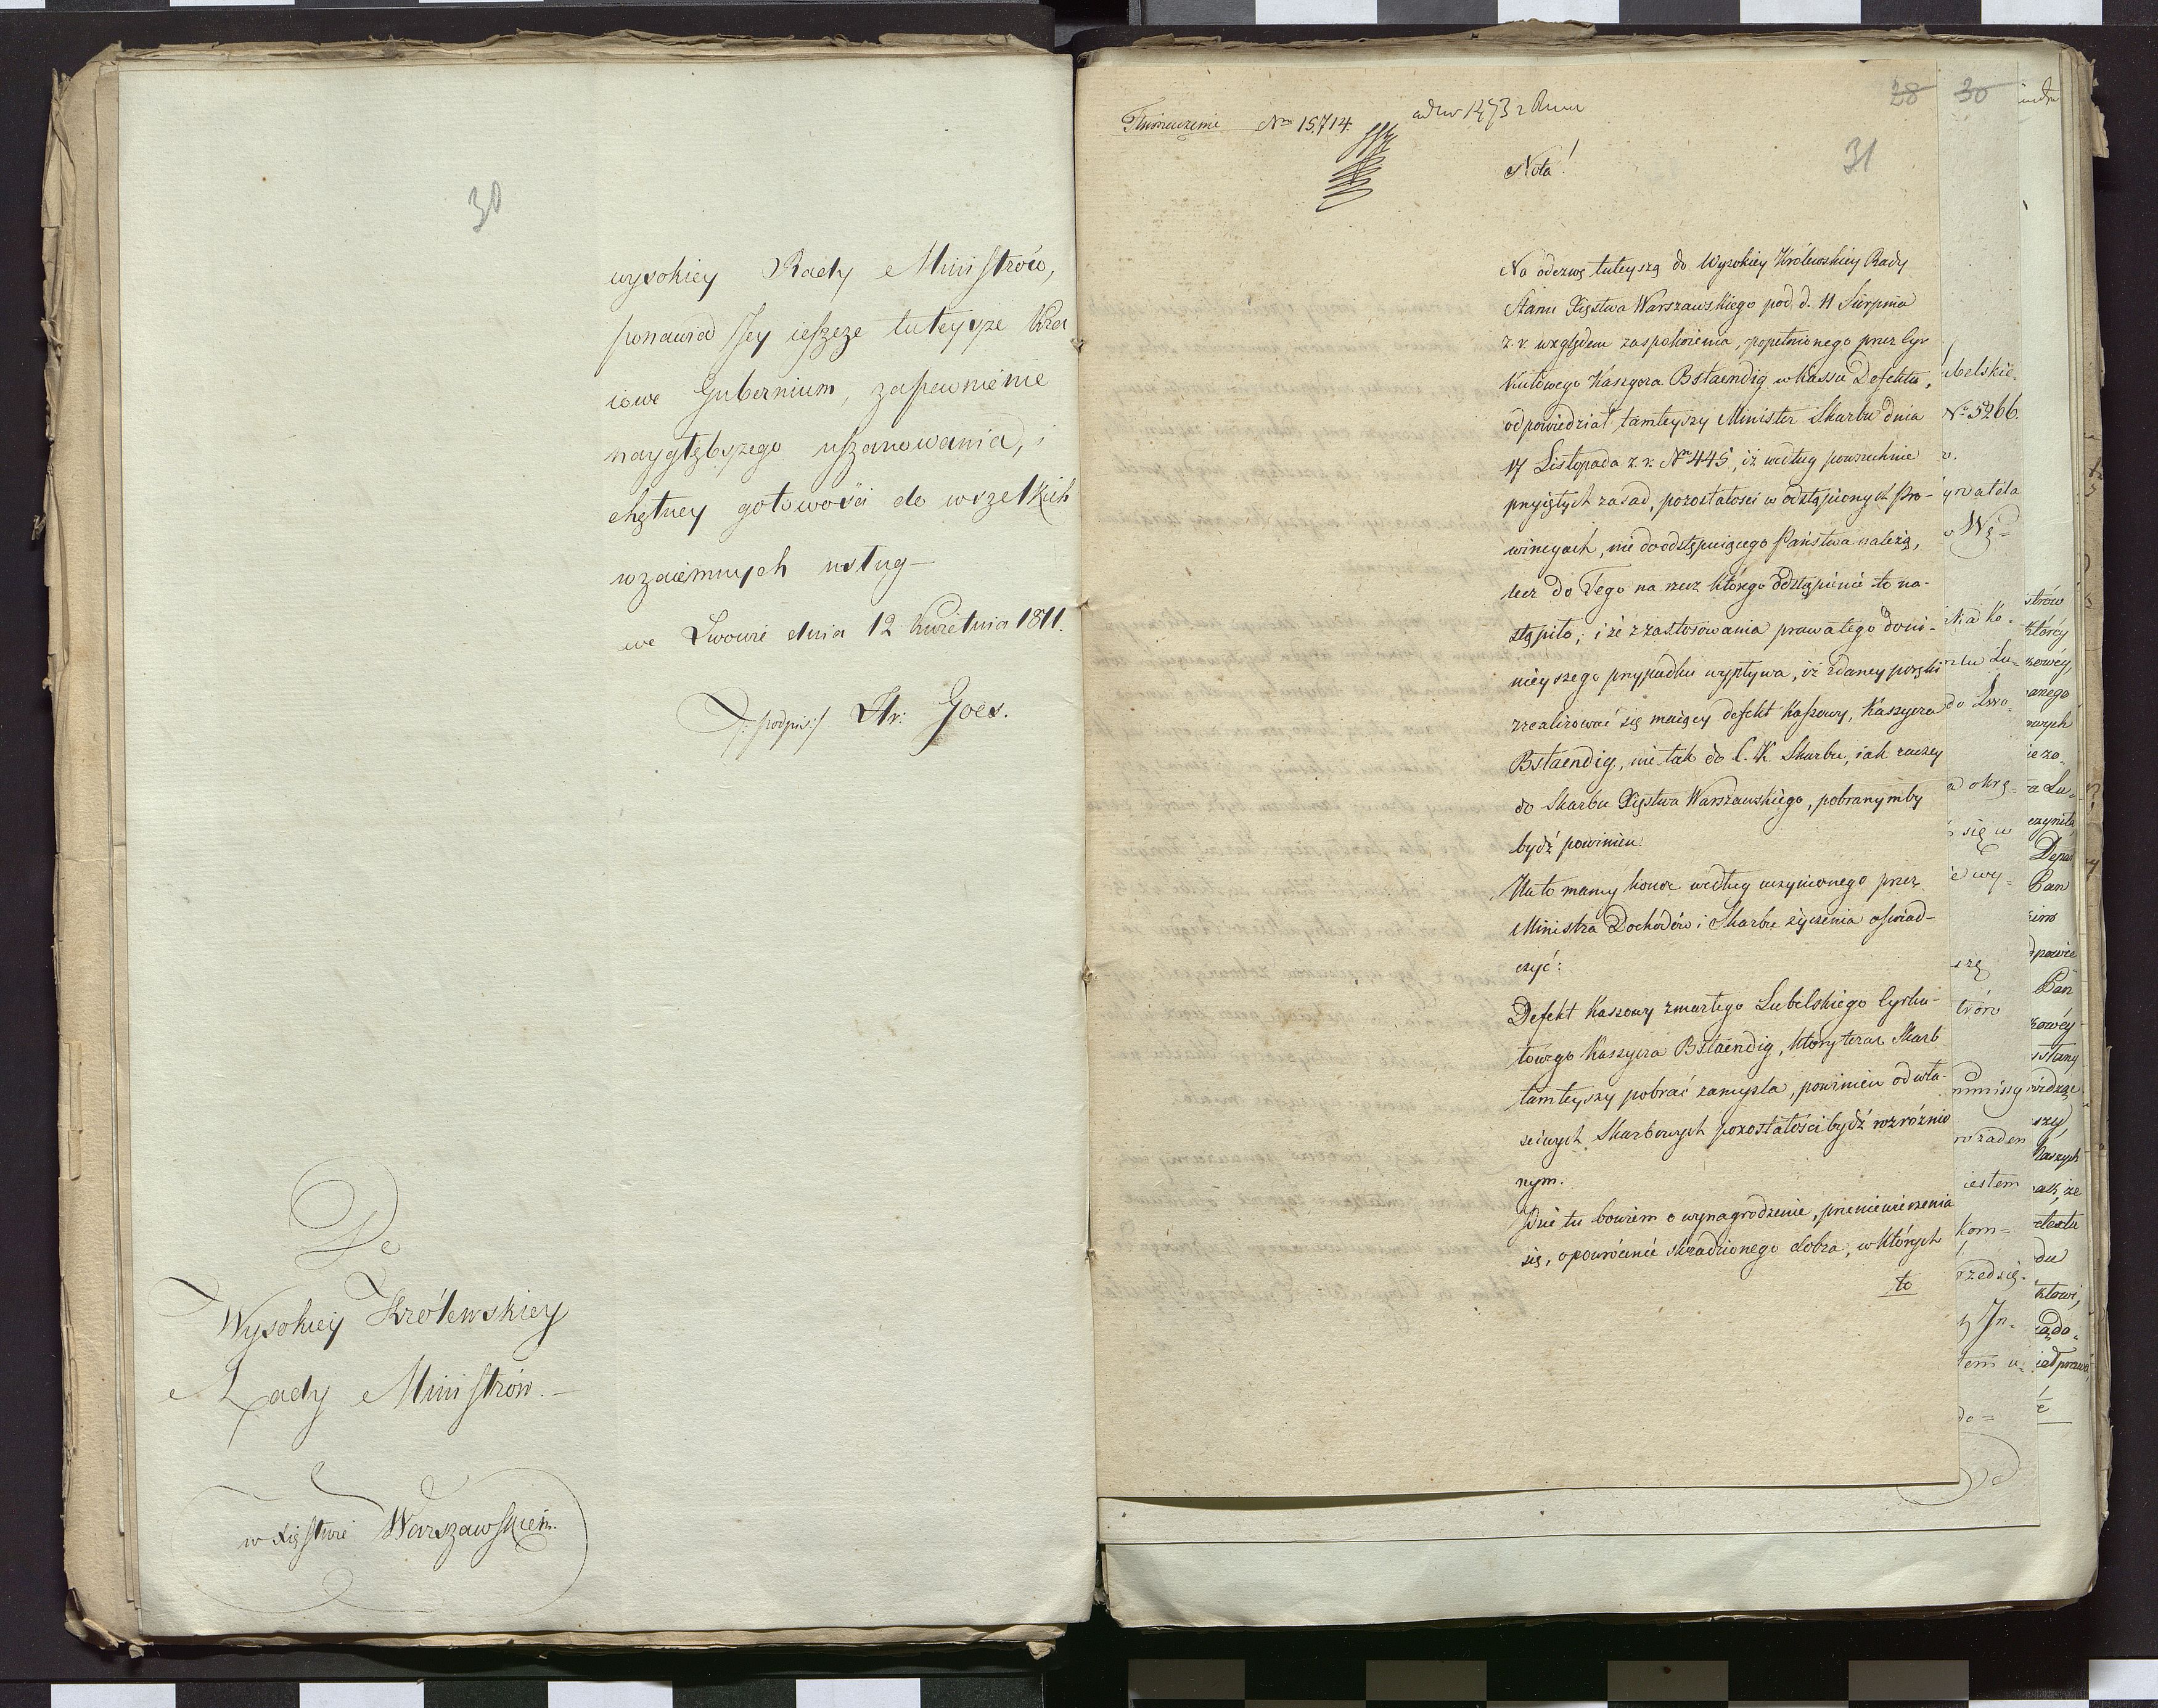 30
wysokiey Rady Ministrów,
ponawia Jey ieszcze tuteysze Kra
iowe Gubernium, zapewnienie
naygłębszego uszanowania, i
chętney gotowości do wszelkich
wzaiemnych usług —
we Lwowie dnia 12 Kwietnia 1811.
/: podpis :/ Hr: Goes.
Do
Wysokiey Królewskiey
Rady Ministrów. —
w Xięstwie Warszawskiém.
Tłómaczenie Nro 15,714.
28
31
Nota!
Na odezwę tuteyszą do Wysokiey Królewskiey Rady
Stanu Xięstwa Warszawskiego pod d. 11 Sierpnia
z. r. względem zaspokoienia, popełnionego przez Cyr
kułowego Kassyera Bstaendig w Kassie Defektu,
odpowiedział tamteyszy Minister Skarbu dnia
17 Listopada z. r. Nro 445, iż według powszechnie
przyiętych zasad, pozostałości w odstąpionych Pro-
wincyach, nie do odstępuiącego Państwa należą,
lecz do Tego na rzecz którego odstąpienie to na-
stąpiło; i że z zastosowania prawa tego do ni-
nieyszego przypadku wypływa, iż z daney poręki
zrealizować się maiący defekt Kassowy, Kassyera
Bstaendig, nie tak do C. K. Skarbu, iak raczey
do Skarbu Xięstwa Warszawskiego, pobranymby
bydź powinien.
Na to mamy honor według uczynionego przez
Ministra Dochodów i Skarbu życzenia oświad-
czyć:
Defekt Kassowy zmarłego Lubelskiego Cyrku-
łowego Kassyera Bstaendig, który teraz Skarb
tamteyszy pobrać zamyśla, powinien od wła-
sciwych Skarbowych pozostałości bydź rozróżnio
nym.
Idzie tu bowiem o wynagrodzenie, przeniewierzenia
się, o powrócenie skradzionego dobra, w których
to
30
ubelskie
No 5266.